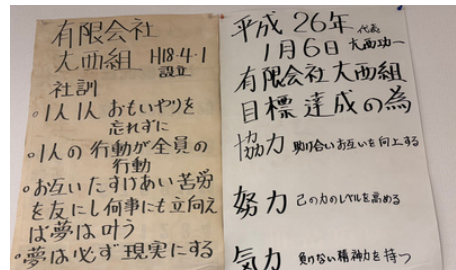 有限会社
大西組 H18・4・1
設立
社訓
○1人1人 おもいやりを
忘れずに
○1人の行動が全員の
行動
○お互いたすけあい苦労
を友にし何事にも立向え
ば夢は叶う
○夢は必ず現実にする
平成26年 代表
1月6日 大西功一
有限会社大西組
目標達成の為
協力 助け合いお互いを向上する
努力 己の力のレベルを高める
気力 負けない精神力を持つ